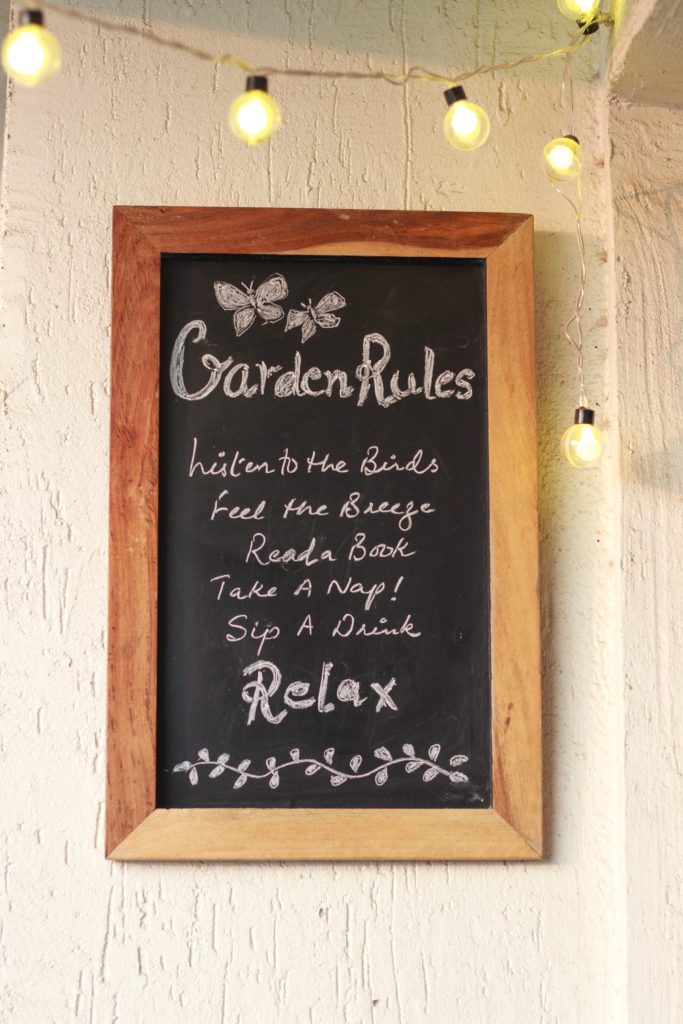 Garden Rules
Listen to the Birds
Feel the Breeze
Read a Book
Take A Nap!
Sip A Drink
Relax